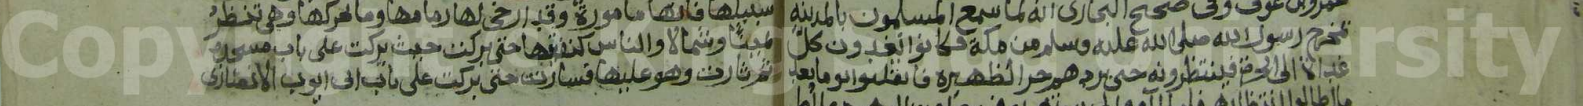 عمرو بن عوف وفى صحيح البخارى انه لما سمع المسلمون بالمدينة
مخرج رسول الله صلى الله عليه وسلم من مكة فكانوا يغدون كل
غداة الى الحرة فينتظرونه حتى يردهم حر الظهيرة فانقلبوا يوما بعد
ما اطالوا
سبيلها فانها مامورة وقد ارخى لها زمامها وما يحركها وهى تنظر
يمينا وشمالا والناس كنفيها حتى بركت حيث بركت على باب مسجده
ثم ثارت وهو عليها فسارت حتى بركت على باب ابى ايوب الانصارى
Copy
ersity